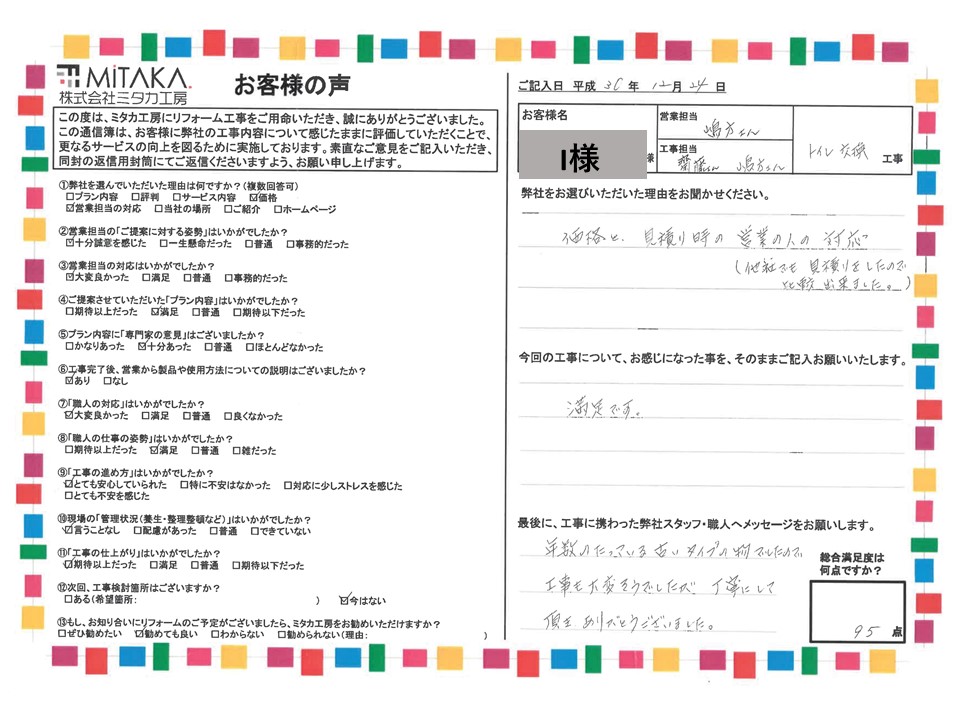 MiTAKA
株式会社ミタカ工房
お客様の声
この度は、ミタカ工房にリフォーム工事をご用命いただき、誠にありがとうございました。
この通信簿は、お客様に弊社の工事内容について感じたままに評価していただくことで、
更なるサービスの向上を図るために実施しております。素直なご意見をご記入いただき、
同封の返信用封筒にてご返信くださいますよう、お願い申し上げます。
①弊社を選んでいただいた理由は何ですか?(複数回答可)
□プラン内容 □評判 □サービス内容 ☑価格
☑営業担当の対応 □当社の場所 □ご紹介 □ホームページ
②営業担当の「ご提案に対する姿勢」はいかがでしたか?
☑十分誠意を感じた □一生懸命だった □普通 □事務的だった
③営業担当の対応はいかがでしたか?
☑大変良かった □満足 □普通 □事務的だった
④ご提案させていただいた「プラン内容」はいかがでしたか?
□期待以上だった ☑満足 □普通 □期待以下だった
⑤プラン内容に「専門家の意見」はございましたか?
□かなりあった ☑十分あった □普通 □ほとんどなかった
⑥工事完了後、営業から製品や使用方法についての説明はございましたか?
☑あり □なし
⑦「職人の対応」はいかがでしたか?
☑大変良かった □満足 □普通 □良くなかった
⑧「職人の仕事の姿勢」はいかがでしたか?
□期待以上だった ☑満足 □普通 □雑だった
⑨「工事の進め方」はいかがでしたか?
☑とても安心していられた □特に不安はなかった □対応に少しストレスを感じた
□とても不安を感じた
⑩現場の「管理状況(養生・整理整頓など)」はいかがでしたか?
☑言うことなし □配慮があった □普通 □できていない
⑪「工事の仕上がり」はいかがでしたか?
☑期待以上だった □満足 □普通 □期待以下だった
⑫次回、工事検討箇所はございますか?
□ある(希望箇所: ) ☑今はない
⑬もし、お知り合いにリフォームのご予定がございましたら、ミタカ工房をお勧めいただけますか?
□ぜひ勧めたい ☑勧めても良い □わからない □勧められない(理由: )
ご記入日 平成 30 年 12月 24 日
お客様名
I様
様
営業担当
嶋方さん
工事担当
齋藤さん 嶋方さん
トイレ交換 工事
弊社をお選びいただいた理由をお聞かせください。
価格と、見積り時の営業の人の対応
(他社でも見積りをしたので
比較出来ました。)
今回の工事について、お感じになった事を、そのままご記入お願いいたします。
満足です。
最後に、工事に携わった弊社スタッフ・職人へメッセージをお願いします。
年数のたっている古いタイプの物でしたので
工事も大変そうでしたが 丁寧にして
頂き ありがとうございました。
総合満足度は
何点ですか?
95 点